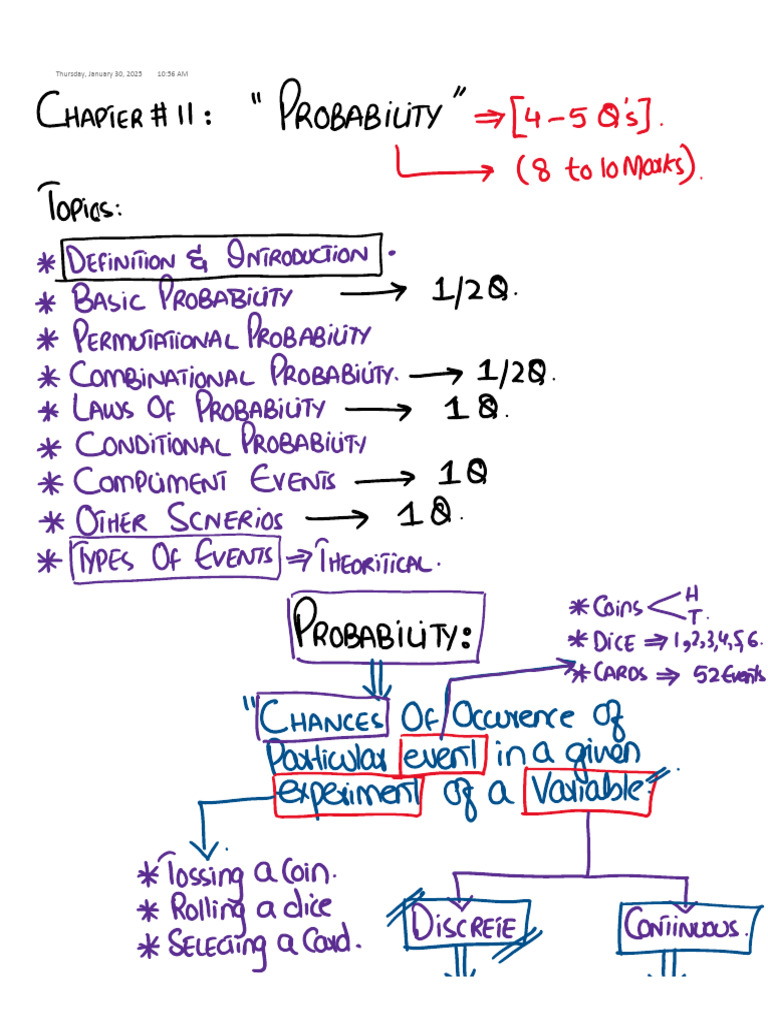 Thursday, January 30, 2025 10:56 AM
CHAPTER # 11: "PROBABILITY" ⇒ [4-5 Q's].
→ (8 to 10 Marks).
Topics:
* DEFINITION & INTRODUCTION.
* BASIC PROBABILITY → 1/2Q.
* PERMUTATIONAL PROBABILITY
* COMBINATIONAL PROBABILITY. → 1/2Q.
* LAWS OF PROBABILITY → 1 Q.
* CONDITIONAL PROBABILITY
* COMPLIMENT EVENTS → 1Q
* OTHER SCNERIOS → 1Q.
* TYPES OF EVENTS ⇒ THEORITICAL.
PROBABILITY:
* Coins H
T.
* DICE ⇒ 1,2,3,4,5,6.
* CARDS ⇒ 52 Events
"CHANCES OF Occurence Of
Particular event in a given
experiment Of a Variable."
* Tossing a Coin.
* Rolling a dice
* SELECting a Card.
DISCRETE
CONTINUOUS.